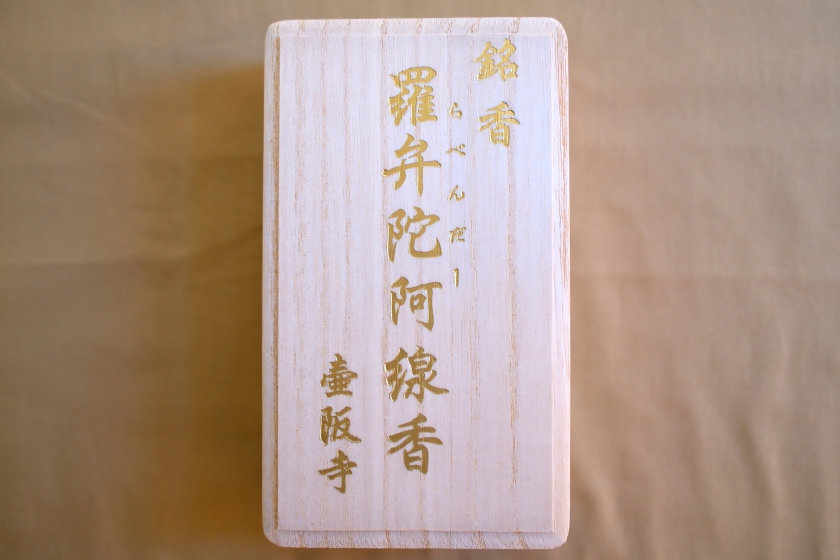 銘香
らべんだー
羅弁陀阿線香
壷阪寺